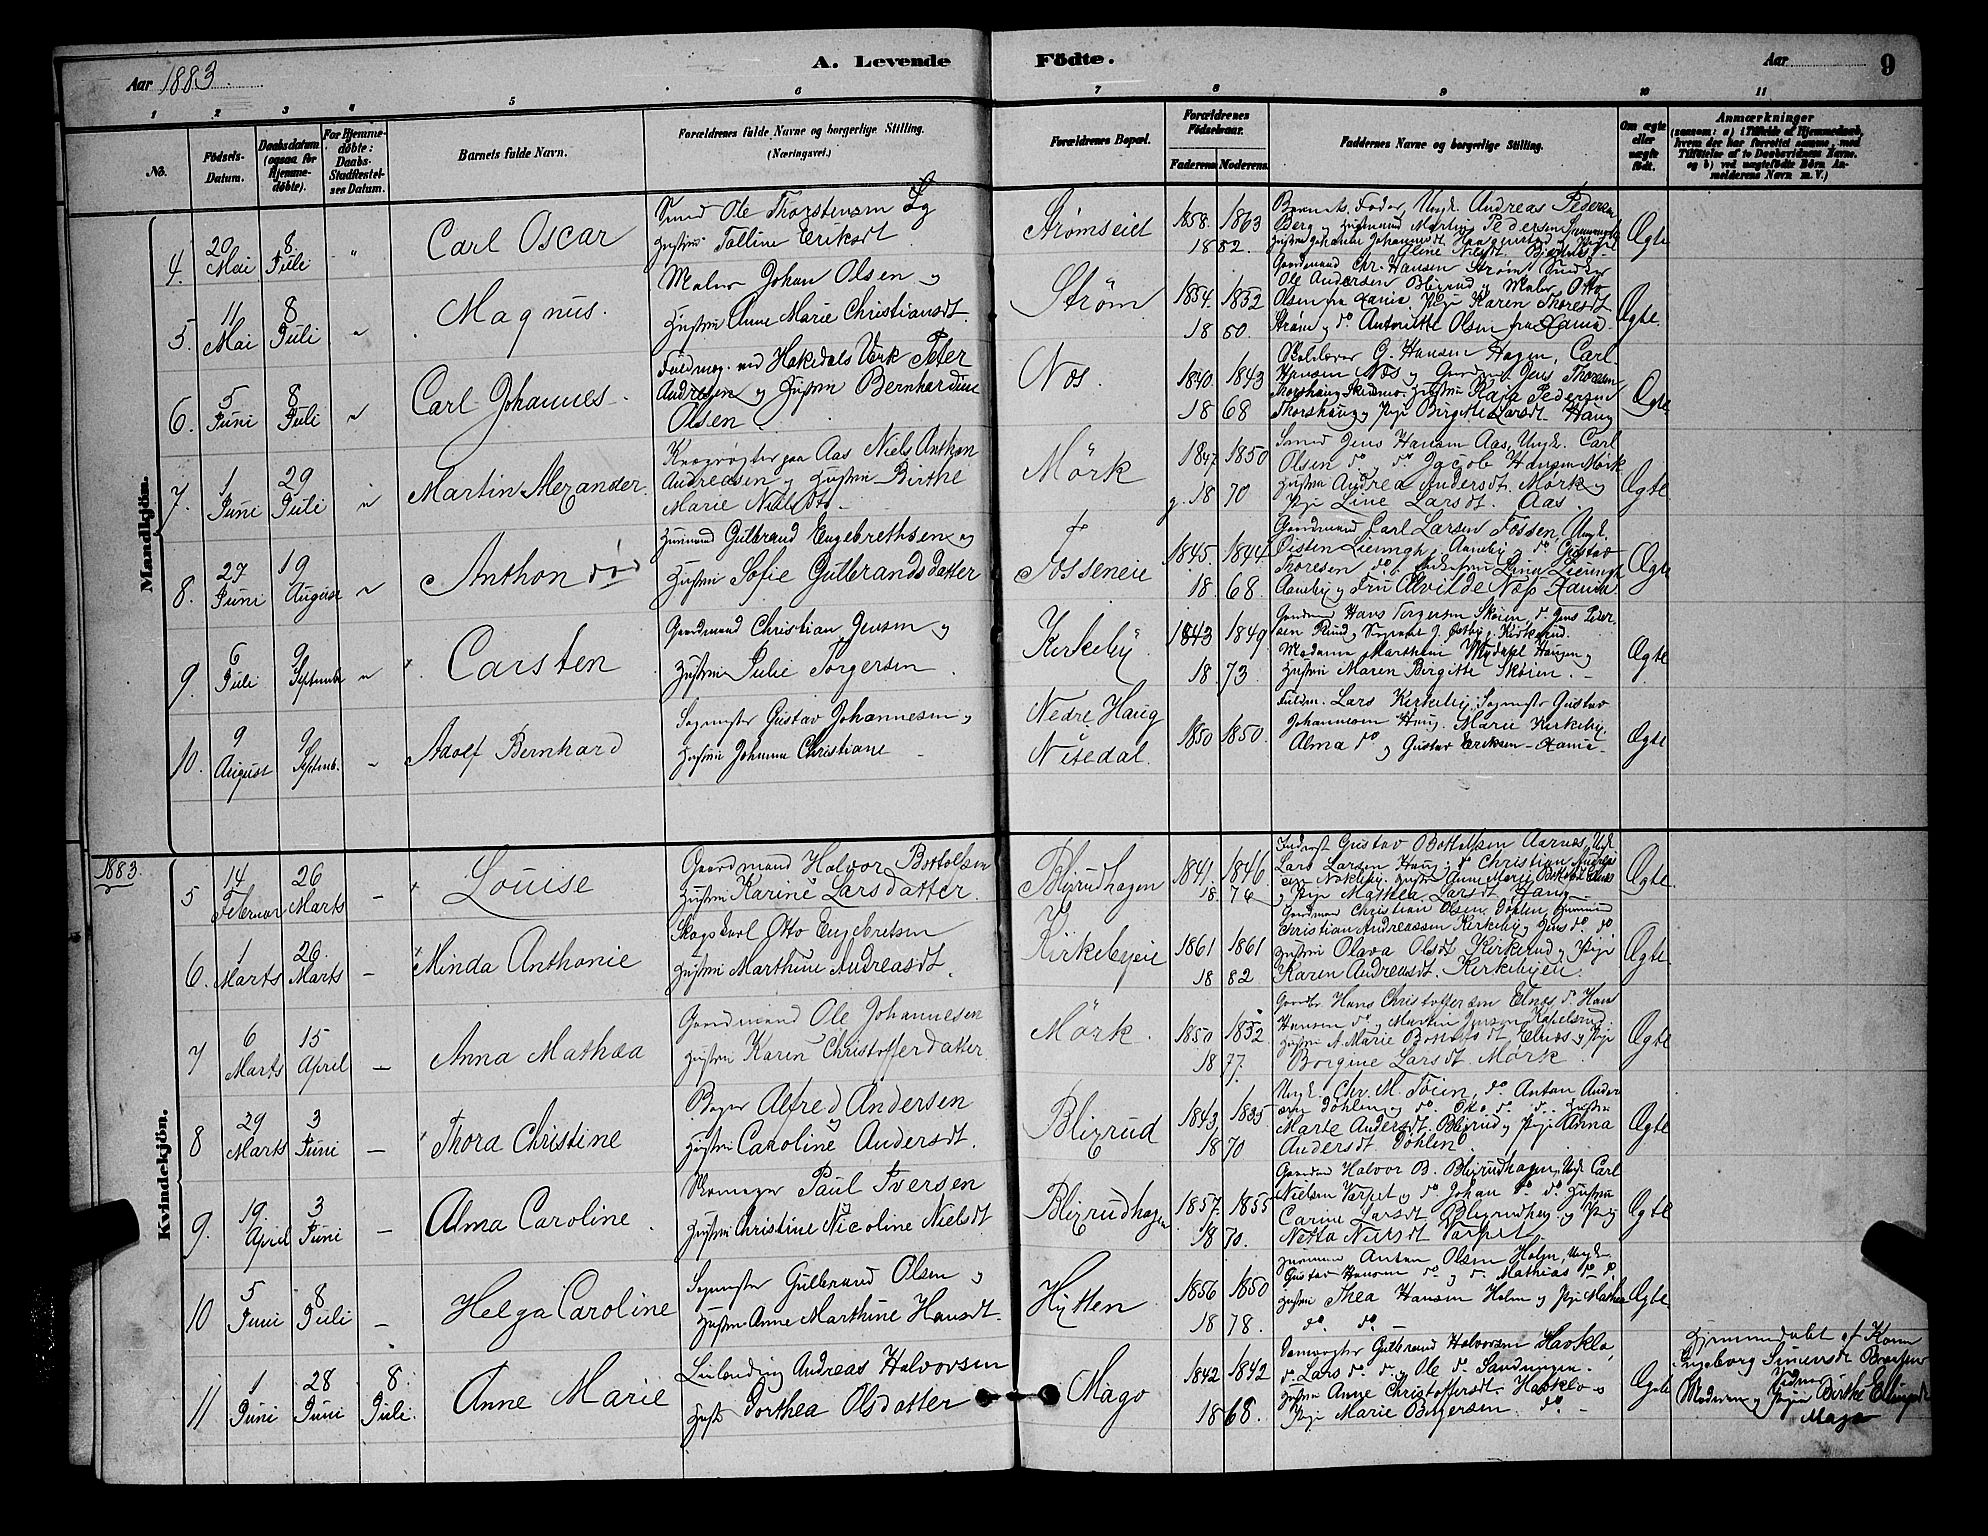 Aar 1883.
A. Levende Födte.
Aar
9
1 2 3 4 5 6 7 8 9 10 11
No.
Födsels-Datum.
Daabsdatum (ogsaa for Hjemme-döbte).
For Hjemme-döbte: Daabs-Stadfæstel-ses Datum.
Barnets fulde Navn.
Forældrenes fulde Navne og borgerlige Stilling.
(Næringsvei.)
Forældrenes Bopæl.
Forældrenes Födselsaar.
Faderens. Moderens.
Faddernes Navne og borgerlige Stilling.
Om ægte eller uægte födt.
Anmærkninger
(saasom: a) i Tilfælde af Hjemmedaab, hvem der har forrettet samme, med Tilföielse af to Daabsvidners Navne, og b) ved uægtefödte Börn An-melderens Navn m. V.)
Mandkjön.
4. 20 Mai 8 Juli " Carl Oscar
Smed Ole Thorstensen og
Hustru Talline Eriksdt
Strømseiet 1858. 1863
1882.
Barnets Fader, Ungk. Andreas Pedersen
Berg og Husmand Martin Pedersen
Ægte
5. 11 Mai 8 Juli " Magnus.
Maler Johan Olsen og
Hustru Anne Marie Christiansdt.
Strøm 1854. 1852
1850.
Gaardmand Chr. Hansen Strøm
Ole Andersen Blixrud og Maler Otto
Olsen fra Xania Pige Karen Thoresdt
Strøm og do Antonette Olsen fra Xania.
Ægte.
6. 5 Juni 8 Juli " Carl Johannes.
Fuldmæg. ved Hakedals Verk Peter
Andresen og Hustru Bernhardine
Olsen.
Nos. 1840. 1843
1868
Skolelærer G. Hansen Hagen, Carl
Hansen Nos og Jens Thoresen
Thorshaug Hustru Kaja Pedersen
Thorshaug og Pige Birgitte Larsdt. Haug
Ægte
7. 1 Juni 29 Juli " Martin Alexander.
paa Aas Niels Anthon
Andreasen og Hustru Birthe
Marie Nielsdt.
Mörk 1847. 1850
g. 1870
Smed Jens Hansen Aas, Ungk. Carl
Olsen do, do Jacob Hansen Mörk
Hustru Andrea Andersdt. Mörk og
Pige Line Larsdt. Aas.
Ægte
8. 27 Juni 19 August " Anthon död
Husmand Gulbrand Engebrethsen og
Hustru Sofie Gulbrandsdatter
Fosseneie 1845. 1844.
1868.
Gaardmand Carl Larsen Fossen, Ungk.
Öisten Lieungh, Aaneby, do Gustav
Thoresen do, Lina Lieungh
Aaneby og Fru Alvilde Næss Xania
Ægte
9. 6 Juli 9 September " Carsten
Gaardmand Christian Jensen og
Hustru Julie Torgersen
Kirkeby. 1843 1849
1873.
Gaardm. Hans Torgersen Skøien, do Jens
Madame Marthem
Hustru Maren Birgitte Skøien.
Ægte
10. 9 August 9 Septemb. " Adolf Bernhard
Sagmester Gustav Johannesen og
Hustru Johanna Christiane
Nedre Haug
Nitedal. 1850 1850.
Fuldm. Lars Kirkeby, Sagmester Gustav
Johannesen Haug. Marie Kirkeby.
Alma do og Gustav Eriksen Xania
Ægte
1883.
Kvindekjön.
5 14 Februar 26 Marts - Louise
Gaardmand Halvor Bottolfsen
Hustru Karine Larsdatter.
Blixrudhagen 1841. 1846
1876
Inderst Gustav Bottolfsen Aarnes, Ungk.
Lars Larsen Haug, do Christian
og Pige Mathea Larsdt. Haug
Ægte.
6. 1 Marts 26 Marts - Minda Anthonie
Skogskarl Otto Engebretsen
Hustru Marthine Andreasdt.
Kirkebyeie 1861 1861
1882
Gaardmand Christian Olsen Döhlen, Husmand
Christian Andreassen Kirkeby og Jens do do
Hustru Olava Olsdt Kirkerud og Pige
Karen Andreasdt. Kirkebyeie.
Ægte
7 6 Marts 15 April - Anna Mathea
Gaardmand Ole Johannesen
Hustru Karen Christofferdatter.
Mörk. 1850 1852
1877.
Gaardbr. Hans Christoffersen Elnæs do Hans
Hansen do og Martin Jensen
Borgine Larsdt. Mörk
Ægte
8 29 Marts 3 Juni - Thora Christine
Bager Alfred Andersen
Hustru Caroline Andersdt.
Blixrud 1843 1835
1870
Ungk. Chr. M. Toien, do Anton Ander
sen Döhlen og do Otto do do Hustru
Marte Andersdt. Blixrud og Pige Alma
Andersdt Döhlen
Ægte
9. 19. April 3 Juni - Alma Caroline.
Skomager Paul Iversen
Hustru Christine Nicoline Nielsdt
Blixrudhagen 1857. 1855
1870.
Gaardm. Halvor B. Blixrudhagen, Ungk. Carl
Nielsen Varpet og do Johan do do Hustru
Carine Larsdt Blixrudhag. og Pige
Netta Nielsdt Varpet
Ægte
10 5 Juni 8 Juli - Helga Caroline
Sagmester Gulbrand Olsen og
Hustru Anne Marthine Hansdt.
Hytten 1856 1850
1878.
Husmand Anton Olsen Holm, Ungk.
Gustav Hansen do og do Mathias do
Hustru Thea Hansen Holm og Pige Mathea
do do
Ægte
11 1 Juni 28 Juni 8 Juli. Anne Marie
Leilænding Andreas Halvorsen
Hustr Dorthea Olsdatter
Mago 1842 1842
1868.
Damvogter Gulbrand Halvorsen Havklo,
do Lars do do og Ole do Sandungen.
Hustru Anne Christoffersdt. Havklo og
Pige Marie Birgersen do
Ægte
Hjemmedøbt af Kone
Ingeborg Simensdt
Moderen og Pigen Birthe
Mago